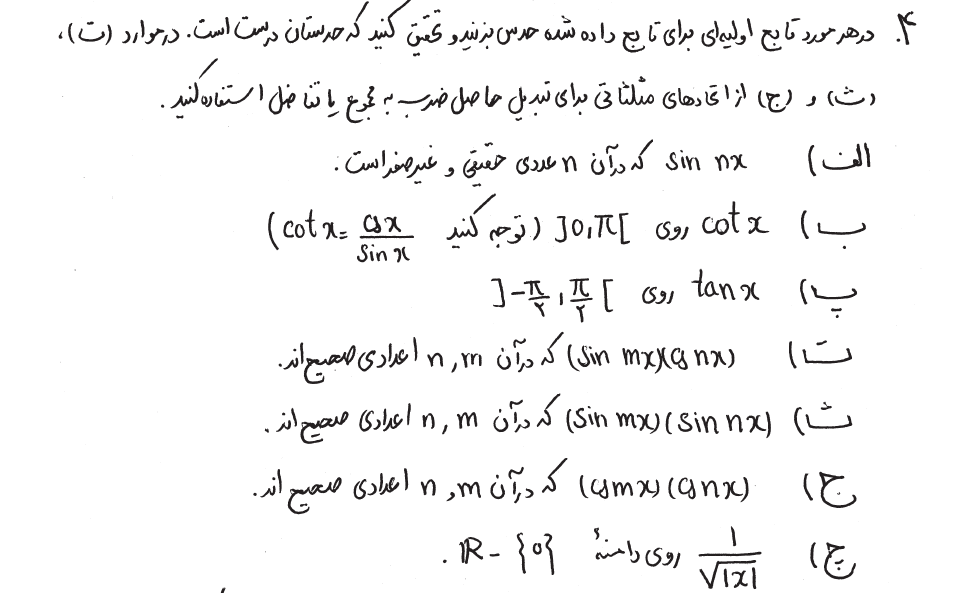 ۴. در هر مورد تابع اولیه‌ای برای تابع داده شده حدس بزنید و تحقیق کنید که حدستان درست است. در موارد (ت)،
(ث) و (ج) از اتحادهای مثلثاتی برای تبدیل حاصل ضرب به مجموع یا تفاضل استفاده کنید.
الف) sin nx که در آن n عددی حقیقی و غیرصفر است.
ب) cot x روی ]0,π[ (توجه کنید cot x = cos x / sin x)
پ) tan x روی ]-π/۲ , π/۲[
ت) (sin mx)(cos nx) که در آن n, m اعدادی صحیح‌اند.
ث) (sin mx)(sin nx) که در آن n, m اعدادی صحیح‌اند.
ج) (cos mx)(cos nx) که در آن n, m اعدادی صحیح‌اند.
چ) 1/√|x| روی دامنهٔ ℝ - {0}.